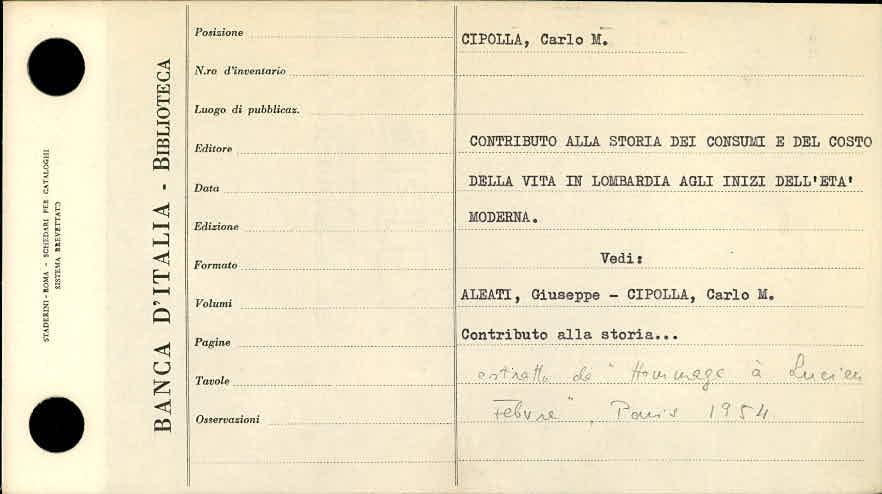 STADERINI - ROMA - SCHEDARI PER CATALOGHI
SISTEMA BREVETTATO
BANCA D'ITALIA - BIBLIOTECA
Posizione
N.ro d'inventario
Luogo di pubblicaz.
Editore
Data
Edizione
Formato
Volumi
Pagine
Tavole
Osservazioni
CIPOLLA, Carlo M.
CONTRIBUTO ALLA STORIA DEI CONSUMI E DEL COSTO
DELLA VITA IN LOMBARDIA AGLI INIZI DELL'ETA'
MODERNA.
Vedi:
ALEATI, Giuseppe - CIPOLLA, Carlo M.
Contributo alla storia...
estratto da "Hommage à Lucien
Febvre", Paris 1954